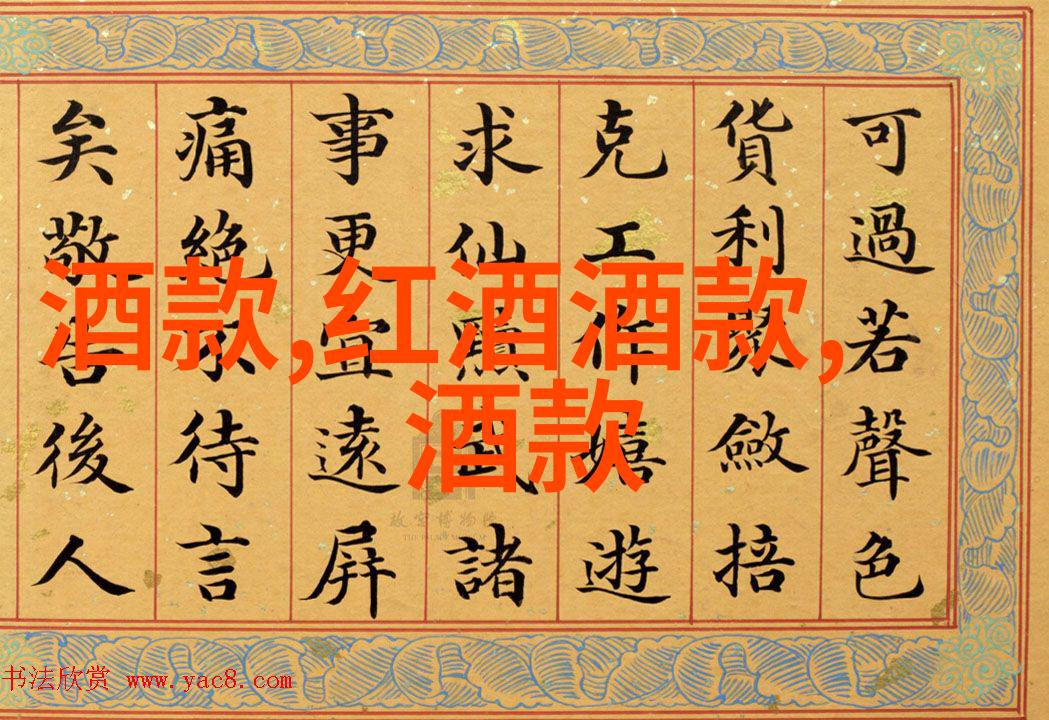 可過若聲色
貨利聚斂掊
克工作嬉遊
求仙黷武諸
事更宜遠屏
痛絕不待言
矣敬告後人
酒款,红酒酒款,
酒款
故宫博物院
书法欣赏 www.yac8.com